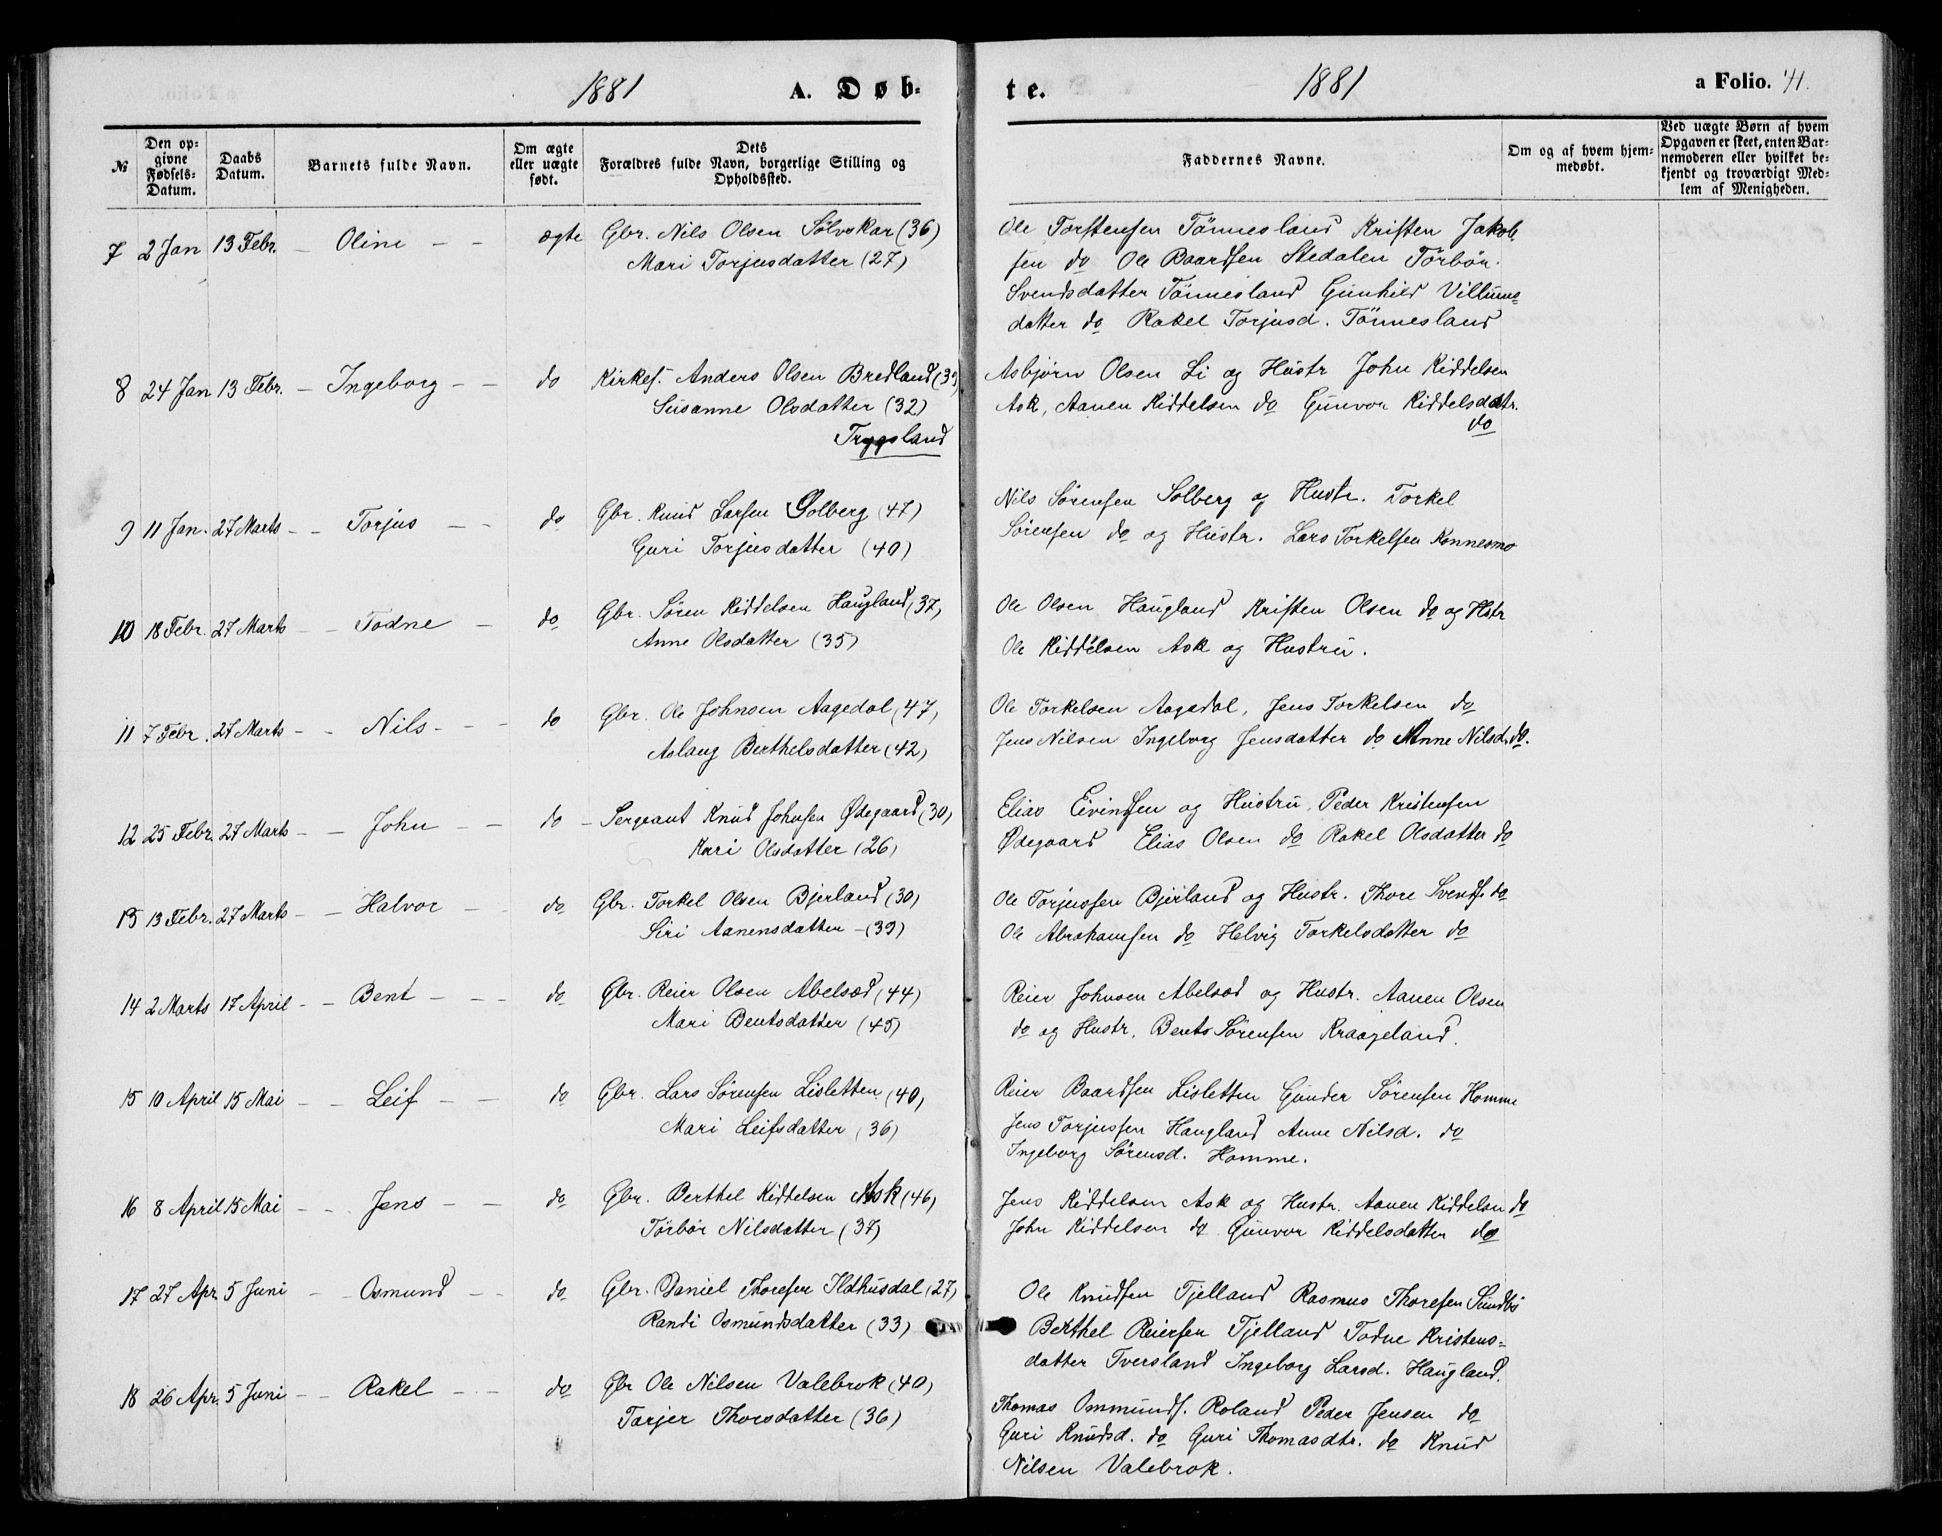 1881 A. Døb-
№
Den op-
givne
Fødsels-
Datum.
Daabs
Datum.
Barnets fulde Navn.
Om ægte
eller uægte
født.
Dets
Forældres fulde Navn, borgerlige Stilling og
Opholdssted.
7 2 Jan 13 Febr. – Oline – – ægte Gbr. Nils Olsen Sølvskar (36)
Mari Torjusdatter (27)
8 24 Jan 13 Febr. – Ingeborg – – do Kirkes. Anders Olsen Bredland (39)
Susanne Olsdatter (32)
Trygsland
9 11 Jan. 27 Marts – – Torjus – – do Gbr. Knud Larsen Solberg (47)
Guri Torjusdatter (40)
10 18 Febr. 27 Marts – – Todne – do Gbr. Søren Kiddelsen Haugland (37,
Anne Olsdatter (35)
11 7 Febr. 27 Marts – – Nils – – do Gbr. Ole Johnsen Aagedal (47,
Aslaug Berthelsdatter (42)
12 25 Febr. 27 Marts – – John – – do – Sergeant Knud Johnsen Ødegaard (30)
Mari Olsdatter (26)
13 13 Febr. 27 Marts – – Halvor – – do Gbr. Torkel Olsen Bjerland (30)
Siri Aanensdatter – (39)
14 2 Marts 17 April – – Bent – – – do Gbr. Reier Olsen Abelsæd (44)
Mari Bentsdatter (45)
15 10 April 15 Mai – – Leif – – do Gbr. Lars Sørensen Lisletten (40,
Mari Leifsdatter (36)
16 8 April 15 Mai – – Jens – – do Gbr. Berthel Kiddelsen Ask (46)
Tørbør Nilsdatter (37)
17 27 Apr. 5 Juni – – Osmund – – do Gbr. Daniel Thoresen Ildhusdal (27)
Randi Osmundsdatter (33)
18 26 Apr. 5 Juni – – Rakel – – do Gbr Ole Nilsen Valebrok (40)
Tarjer Thorsdatter (36)
te. 1881 a Folio. 41.
Faddernes Navne.
Om og af hvem hjem-
medøbt.
Ved uægte Børn af hvem
Opgaven er skeet, enten Bar-
nemoderen eller hvilket be-
kjendt og troværdigt Med-
lem af Menigheden.
Ole Torstensen Tönnesland Kristen Jakob
sen do Ole Baardsen Stedalen Törbör
Svendsdatter Tönnesland Gunhild Villums-
datter do Rakel Torjusd. Tönnesland
Asbjørn Olsen Li og Hustr John Kiddelsen
Ask, Aanen Kiddelsen do Gunvor Kiddelsdatr.
do
Nils Sørensen Solberg og Hustr. Torkel
Sørensen do og Hustr. Lars Torkelsen Konnesmo
Ole Olsen Haugland Kristen Olsen do og Hstr
Ole Kiddelsen Ask og Hustru.
Ole Torkelsen Aagedal, Jens Torkelsen do
Jens Nilsen Ingeborg Jensdatter do Anne Nilsd. do.
Elias Eivindsen og Hustru, Peder Kristensen
Ødegaard Elias Olsen do Rakel Olsdatter do
Ole Torjussen Bjerland og Hustr. Thore Svends. do
Ole Abrahamsen do Helvig Torkelsdatter do
Reier Johnsen Abelsæd og Hustr. Aanen Olsen
do og Hustr. Bents Sørensen Kraageland.
Reier Baardsen Lisletten Gunder Sørensen Homme
Jens Torjussen Haugland Anne Nilsd. do
Ingeborg Sørensd. Homme.
Jens Kiddelsen Ask og Hustr. Aanen Kiddelsen do
John Kiddelsen do Gunvor Kiddelsdatter do
Ole Knudsen Tjelland Rasmus Thoresen Sundbö
Berthel Reiersen Tjelland Todne Kristens-
datter Tversland Ingeborg Larsd. Haugland.
Thomas Ommunds. Roland Peder Jensen do
Guri Knudsd. do Guri Thomasdtr. do Knud
Nilsen Valebrok.